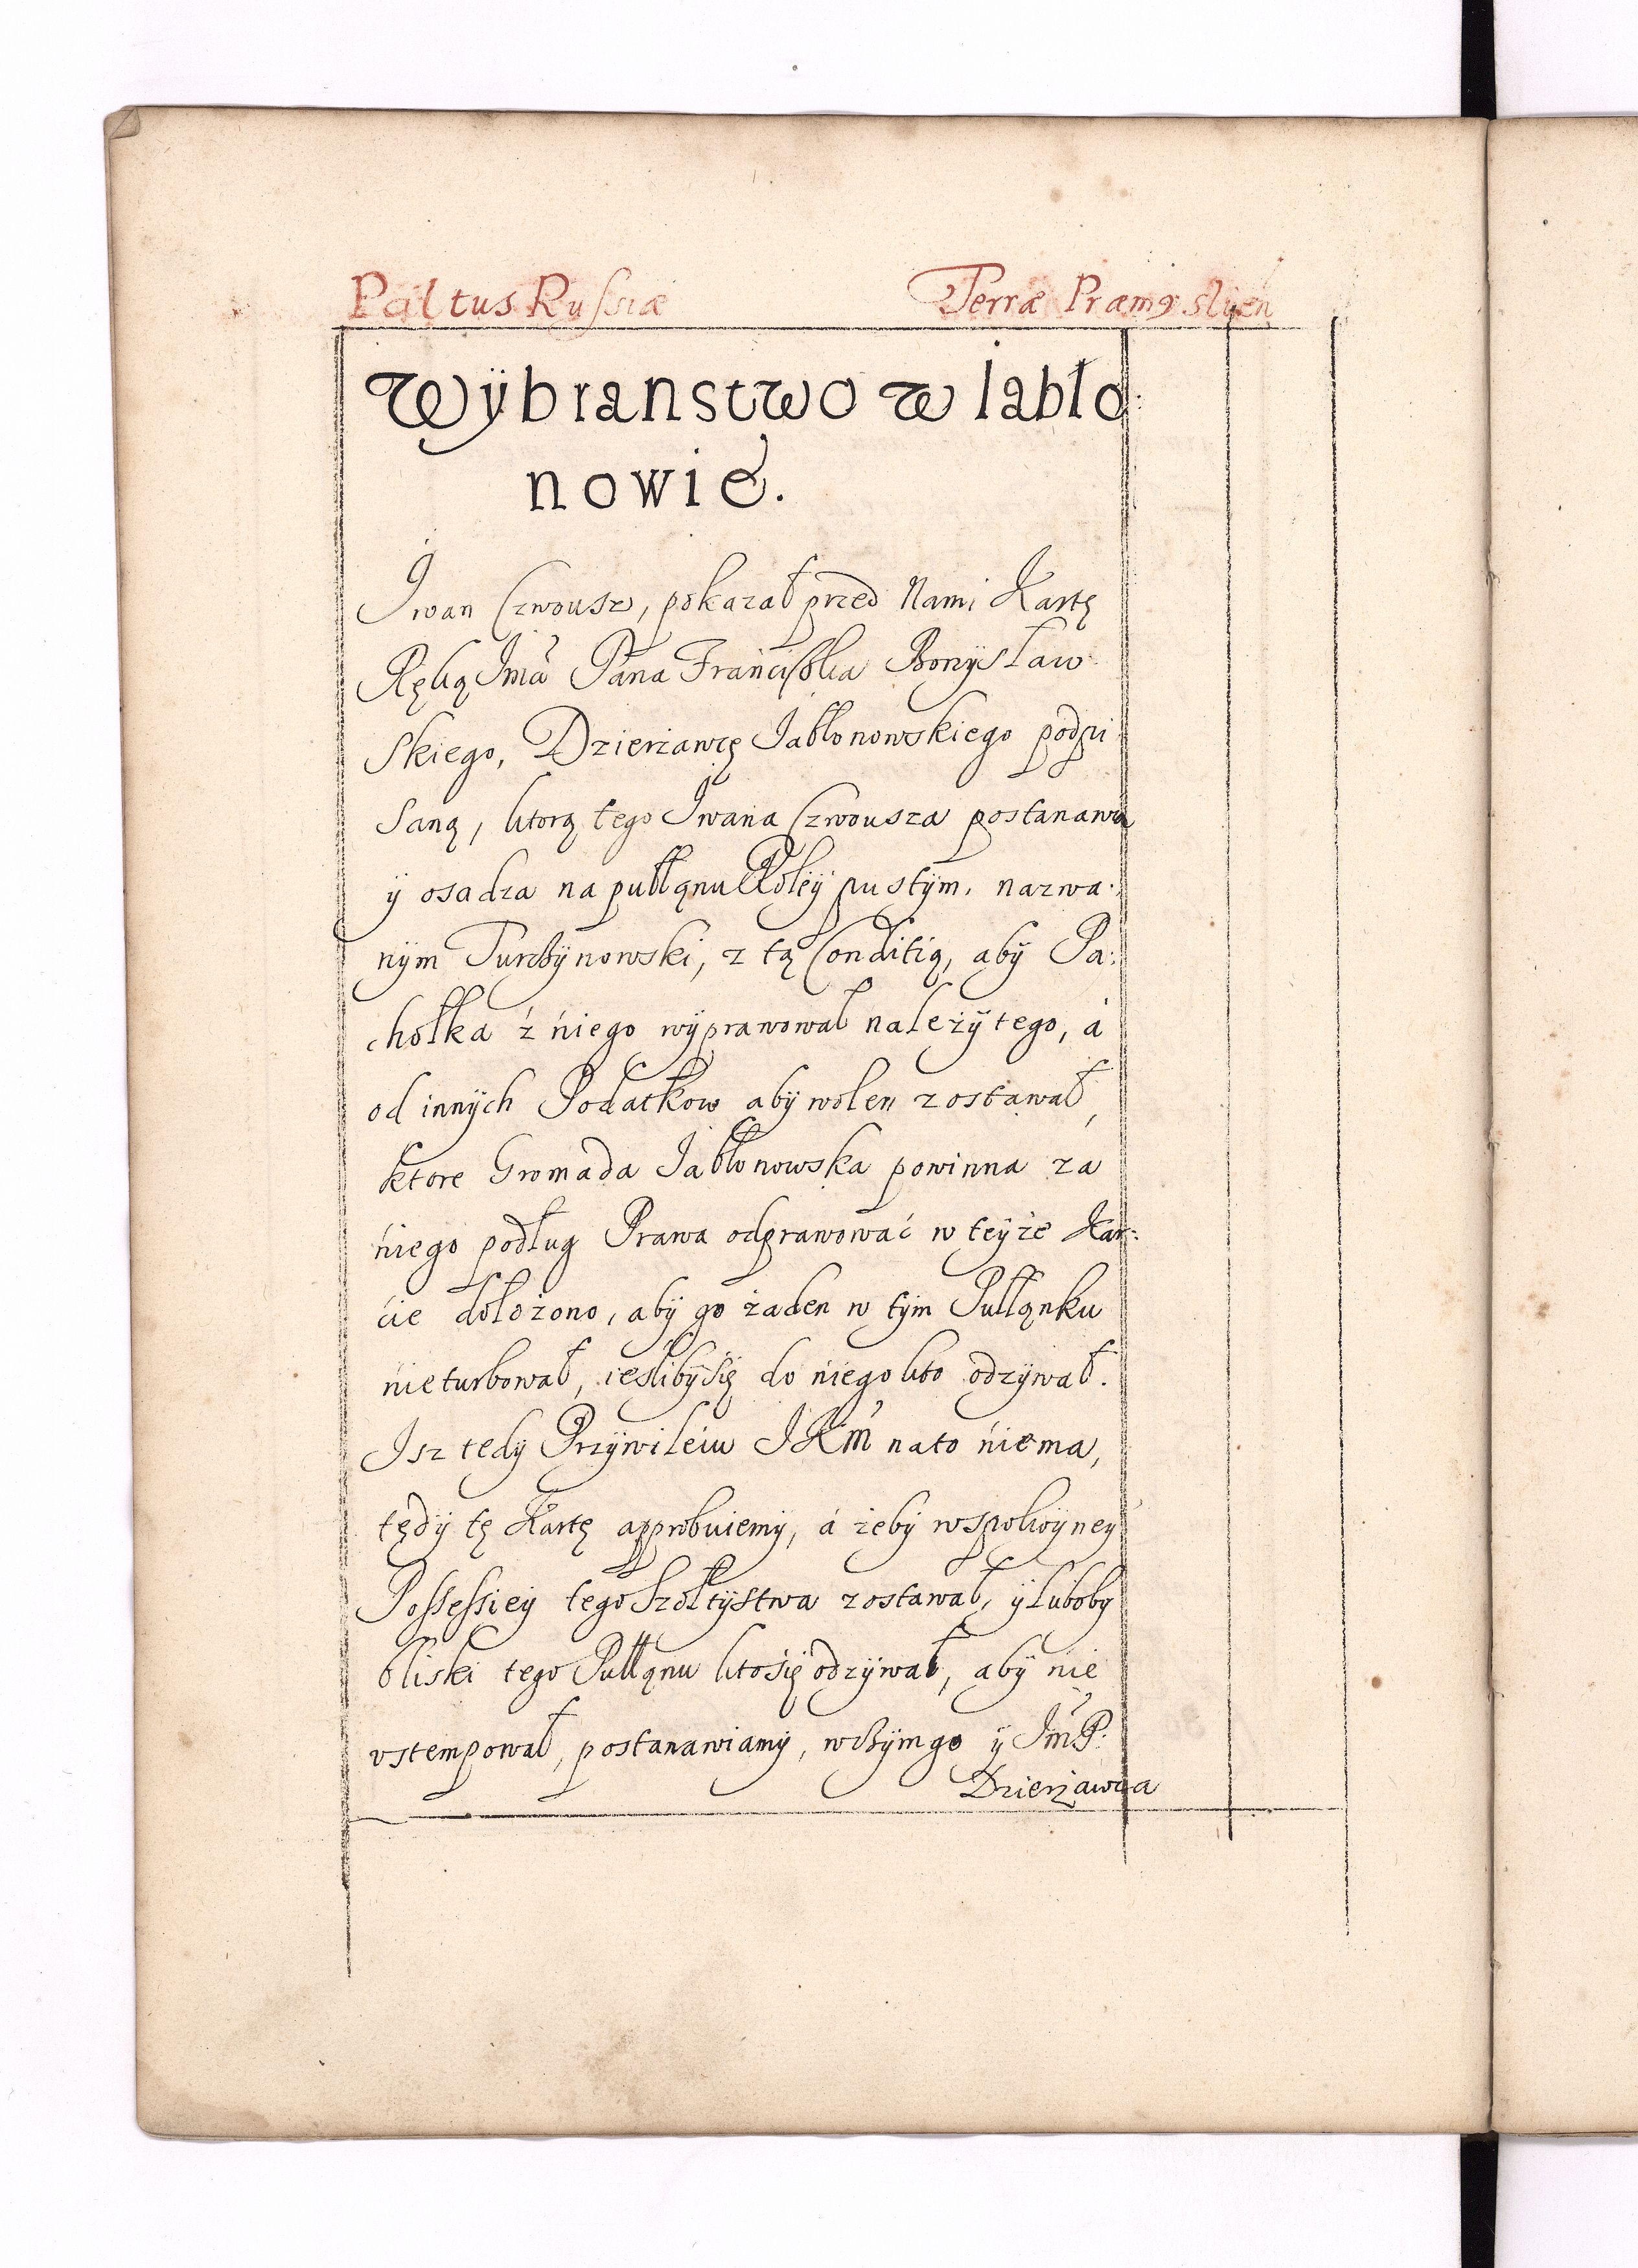 Paltus Russiæ Terræ Præmyslien
Wÿbranstwo w Iabło:
nowie.
Iwan Czwousz, pokazał przed Nami Kartę
Ręką Imā Pana Franciszka Borzysław:
skiego, Dzierzawcę Iabłonowskiego podpi
saną, ktorą tego Iwana Czwousza postanawia
ÿ osadza na pułłąnu Roleÿ pustÿm, nazwa:
nÿm Turczÿnowski, z tą Conditią, abÿ Pa:
chołka z niego wÿprawował należÿtego, á
od innÿch Podatkow abÿ wolen zostawał,
ktore Gromada Iabłonowska powinna za
niego podług Prawa odprawować w teÿże Kar:
cie dołożono, abÿ go żaden w tÿm Pułłąnku
nie turbował, iesli bÿ się do niego kto odzÿwał.
Isz tedÿ Przÿwileiu IKM na to niema,
tędÿ tę Kartę approbuiemÿ, á żebÿ w spokoÿneÿ
Possessieÿ tego Szołtÿstwa zostawał, ÿ lubobÿ
bliski tego Pułłąnu kto się odzÿwał, abÿ nie
vstempował, postanawiamÿ, w czÿm go ÿ ImP:
Dzierzawca